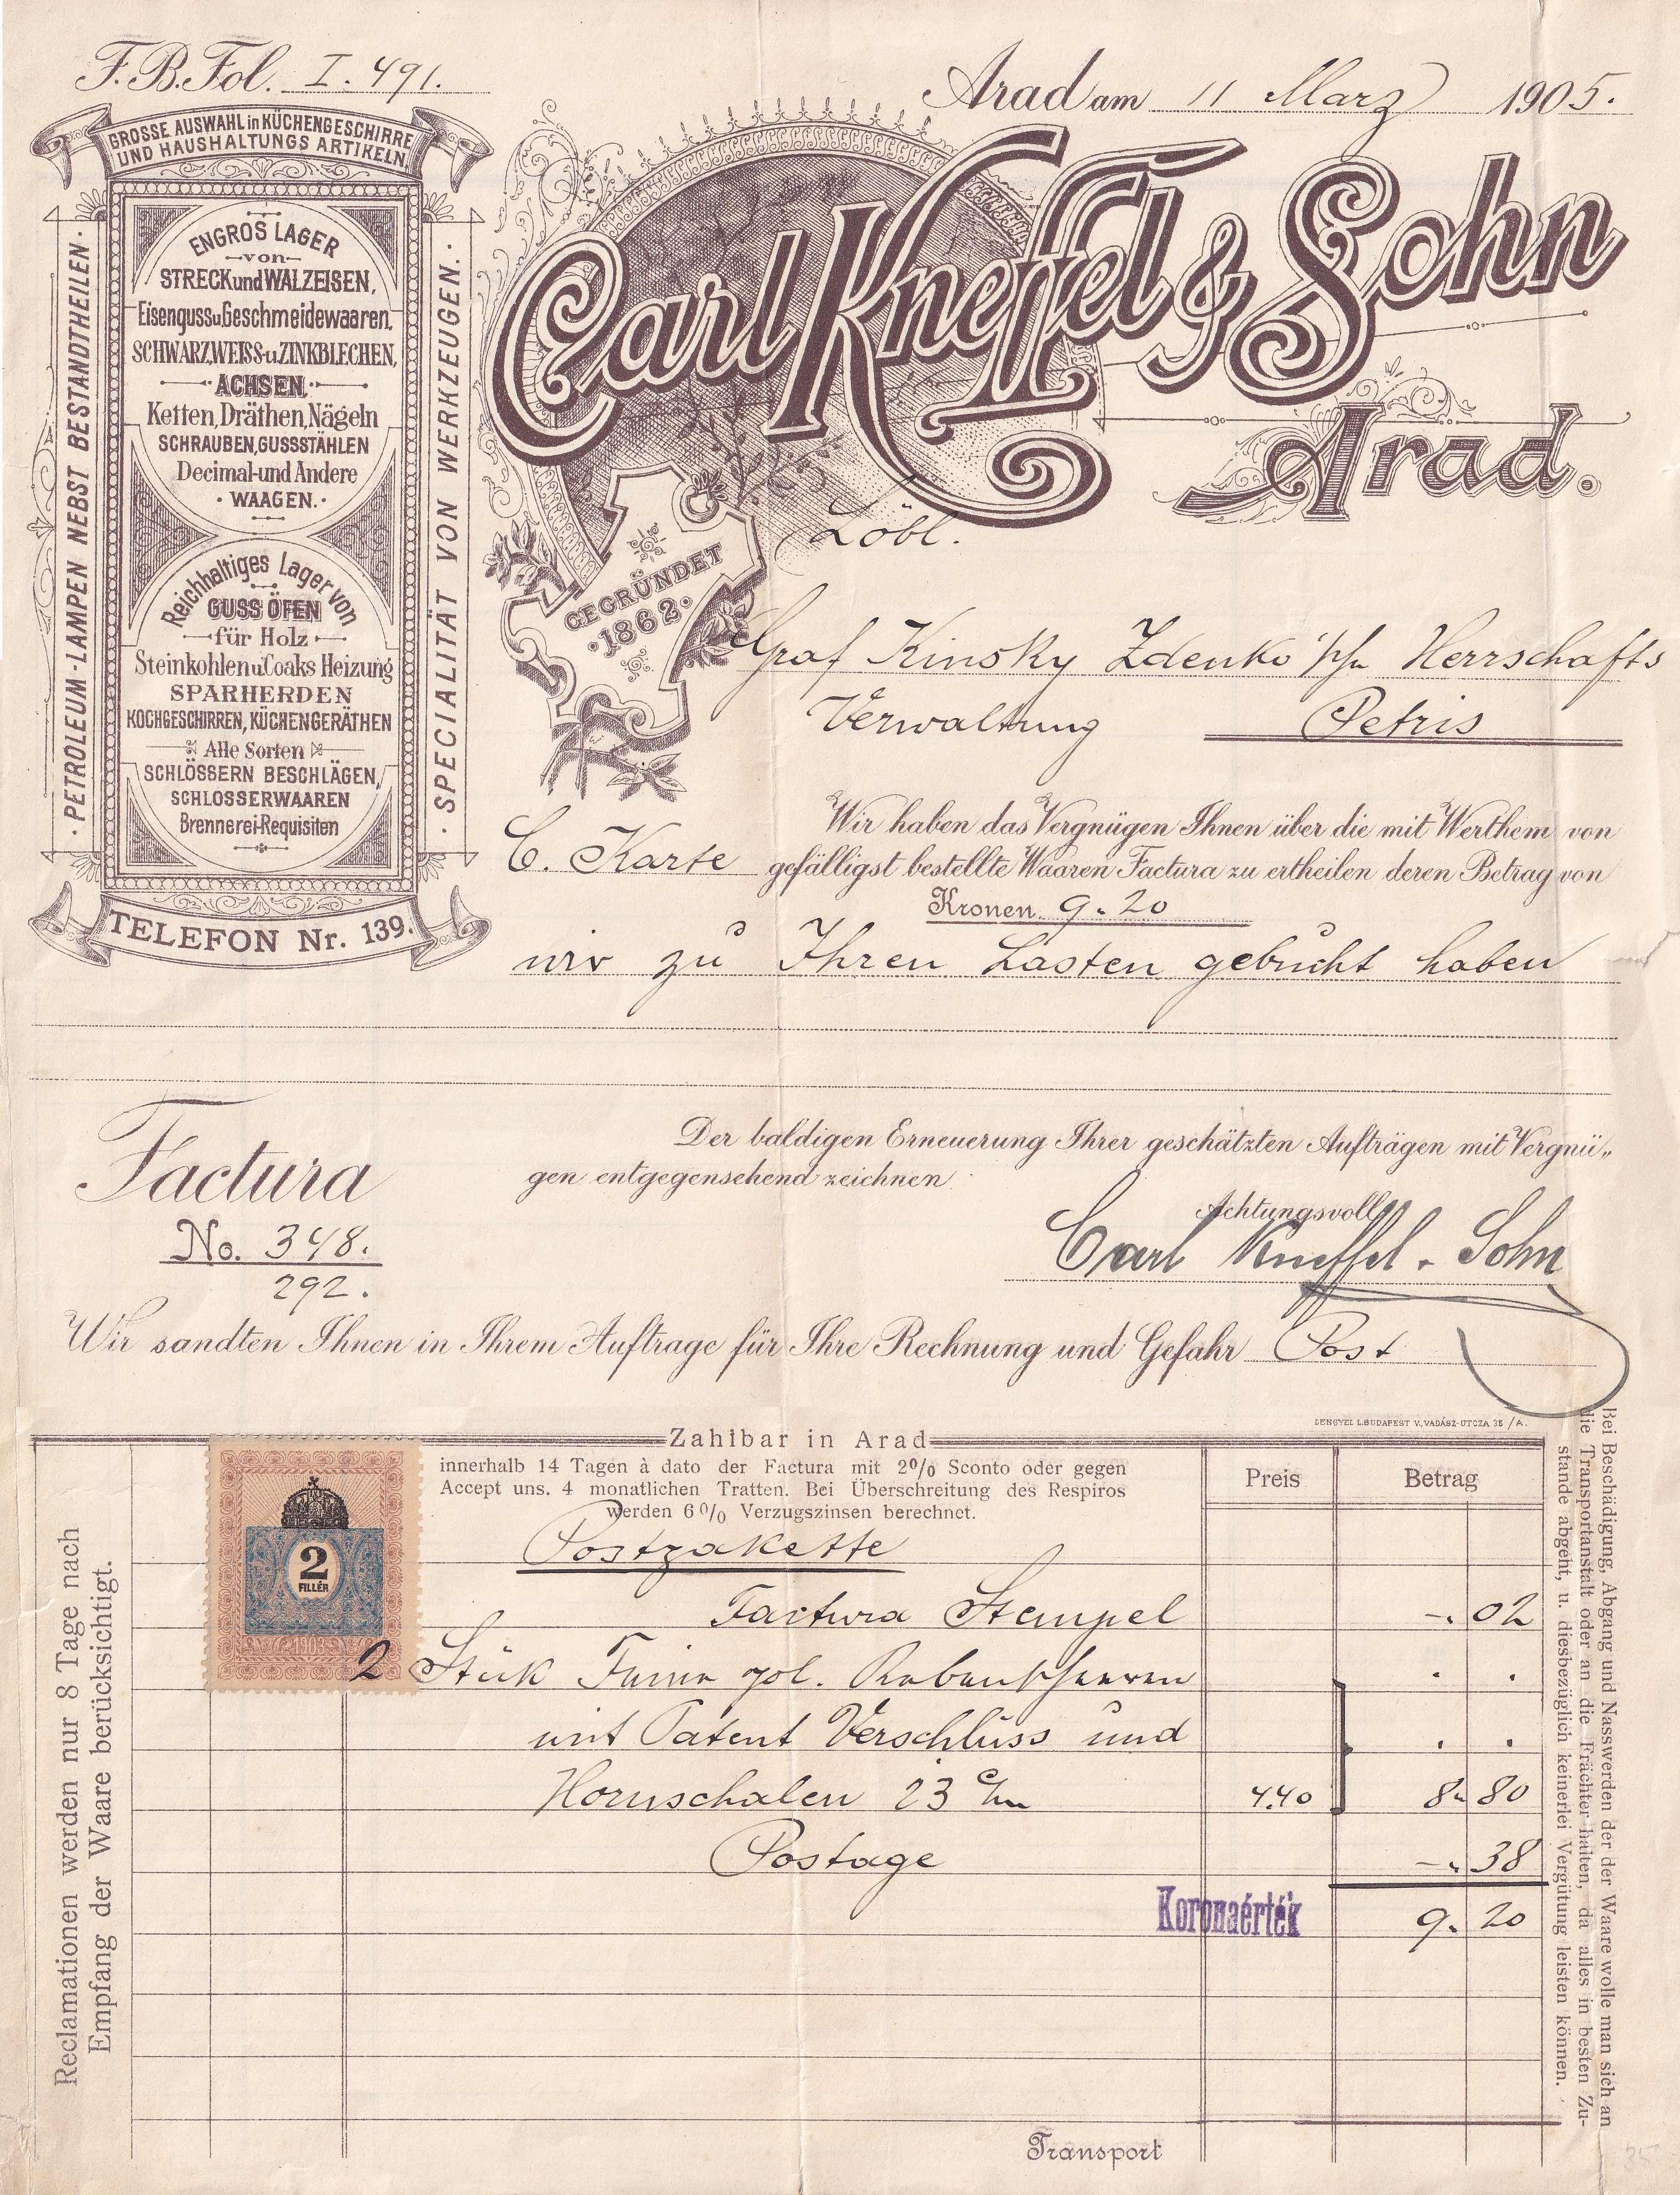 F. B. Fol. I. 491.
Arad am 11 März 1905.
GROSSE AUSWAHL in KÜCHENGESCHIRRE
UND HAUSHALTUNGS ARTIKELN
ENGROS LAGER
von
STRECK und WALZEISEN,
Eisenguss u Geschmeidewaaren,
SCHWARZ, WEISS- u. ZINKBLECHEN,
ACHSEN.
Ketten, Dräthen, Nägeln
SCHRAUBEN, GUSSSTÄHLEN
Decimal- und Andere
WAAGEN.
Reichhaltiges Lager von
GUSS ÖFEN
für Holz
Steinkohlen u. Coaks Heizung
SPARHERDEN
KOCHGESCHIRREN, KÜCHENGERÄTHEN
Alle Sorten
SCHLÖSSERN BESCHLÄGEN,
SCHLOSSERWAAREN
Brennerei-Requisiten
PETROLEUM-LAMPEN NEBST BESTANDTHEILEN
SPECIALITÄT VON WERKZEUGEN.
TELEFON Nr. 139.
Carl Kneffel & Sohn
Arad.
GEGRÜNDET
1862.
Löbl.
Graf Kinsky Zdenko Herrschafts
Verwaltung Petris
Wir haben das Vergnügen Ihnen über die mit Werthem von
C. Karte gefälligst bestellte Waaren Factura zu ertheilen deren Betrag von
Kronen 9.20
wir zu Ihren Lasten gebucht haben
Der baldigen Erneuerung Ihrer geschätzten Aufträgen mit Vergnü„
gen entgegensehend zeichnen
Achtungsvoll
Carl Kneffel & Sohn
Factura
No. 348.
292.
Wir sandten Ihnen in Ihrem Auftrage für Ihre Rechnung und Gefahr Post
LENGYEL L. BUDAPEST V., VADÁSZ-UTCZA 35/A.
Zahlbar in Arad
innerhalb 14 Tagen à dato der Factura mit 2% Sconto oder gegen
Accept uns. 4 monatlichen Tratten. Bei Überschreitung des Respiros
werden 6% Verzugszinsen berechnet.
Preis Betrag
2
FILLÉR
1903
Postpakette
Factura Stempel -. 02
2 Stück Feine pol.
mit Patent Verschluss und
Hornschalen 23 c/m 4.40 8. 80
Postage -. 38
Koronaérték 9. 20
Transport
Reclamationen werden nur 8 Tage nach
Empfang der Waare berücksichtigt.
Bei Beschädigung, Abgang und Nasswerden der der Waare wolle man sich an
die Transportanstalt oder an die Frächter halten, da alles in besten Zu-
stande abgeht, u. diesbezüglich keinerlei Vergütung leisten können.
35